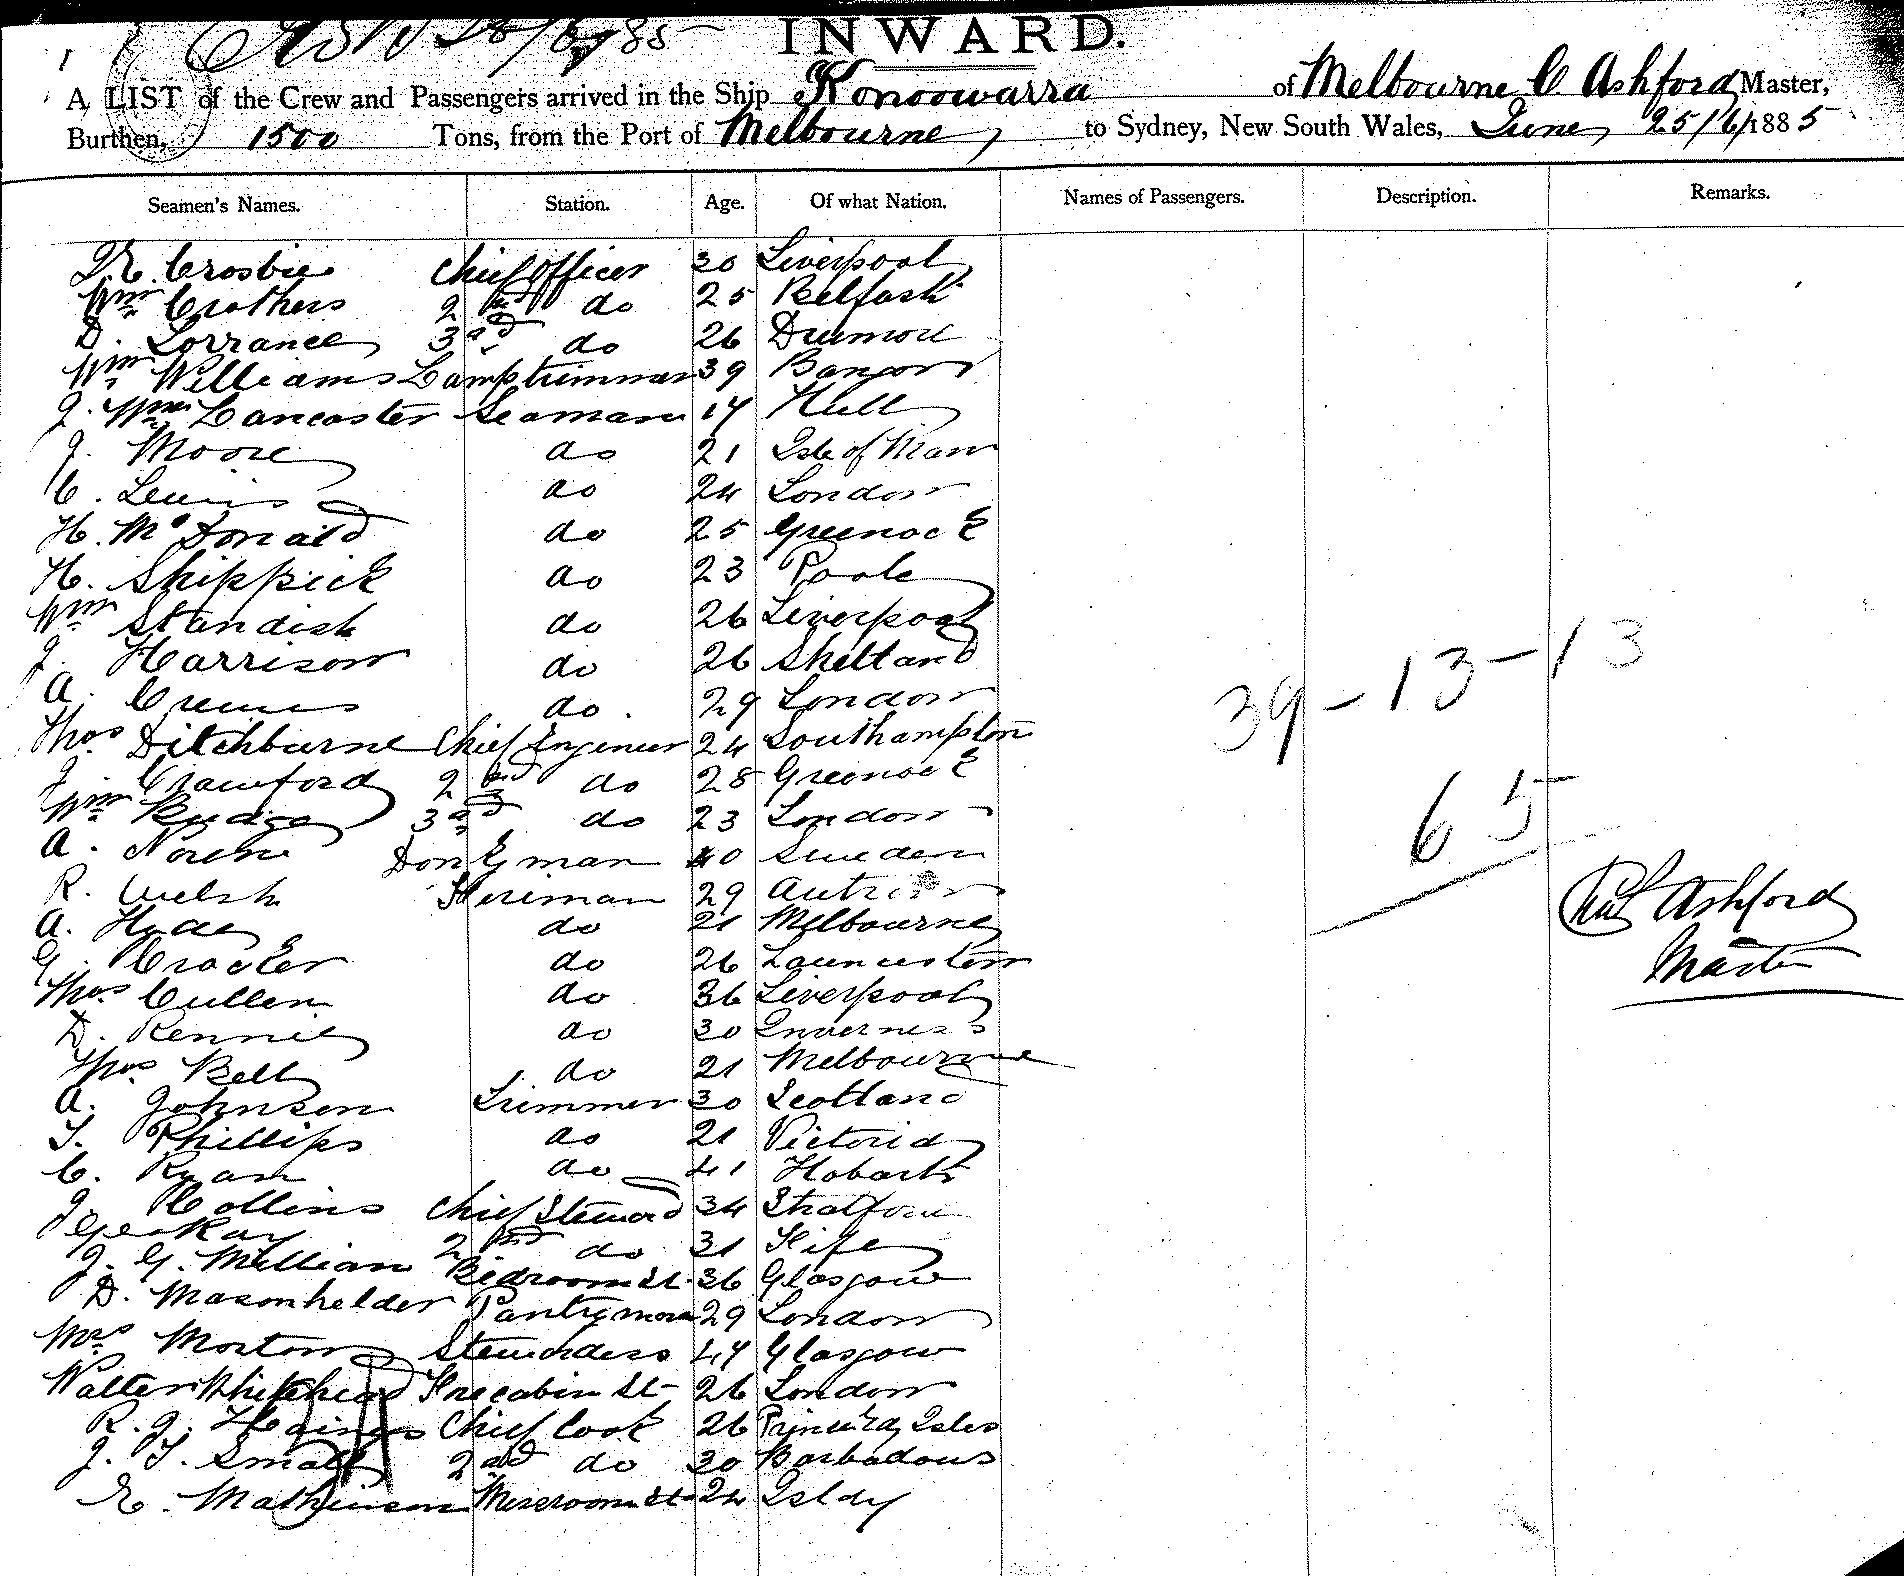 INWARD.
A LIST of the Crew and Passengers arrived in the Ship Konoowarra of Melbourne C Ashford Master,
Burthen, 1500 Tons, from the Port of Melbourne to Sydney, New South Wales, June 25/6/1885
Seamen's Names. Station. Age. Of what Nation. Names of Passengers. Description. Remarks.
Crosbie Chief Officer 30 Liverpool
Wm Crothers 2nd do 25 Belfast
D. Lorrance 3rd do 26 Dromore
Wm Williams Lamptrimmer 39 Bangor
J. Wm Lancaster Seaman 17 Hull
J. Moore do 21 Isle of Man
C. Lewis do 24 London
H. McDonald do 25 Greenock
H. Shippick do 23 Poole
Wm Standish do 26 Liverpool
J. Harrison do 26 Sheltand
A. do 29 London
Thos Ditchburne Chief Engineer 24 Southampton
J. Crawford 2nd do 28 Greenock
Wm Budge 3rd do 23 London
A. Donkyman 40 Sweden
R. Welsh Fireman 29
A. Hyde do 21 Melbourne
G. Crocker do 26 Launceston
Thos Cullen do 36 Liverpool
D. Rennie do 30 Inverness
Thos Bell do 21 Melbourne
A. Johnson Trimmer 30 Scotland
T. Phillips do 21 Victoria
C. Ryan do 41 Hobart
J. Collins Chief Steward 34 Stratford
Geo Kay 2nd do 31 Fife
J. G. Millian Bedroom St. 36 Glasgow
D. Masonhelder Pantryman 29 London
Mrs Morton Stewardess 47 Glasgow
Walter Forecabin St 26 London
R. J. Haines Chief Cook 26
J. T. Small 2nd do 30 Barbadous
E. Mathieson Messroom St 24 Islay
39 - 13 - 13
65
Ashford
Master